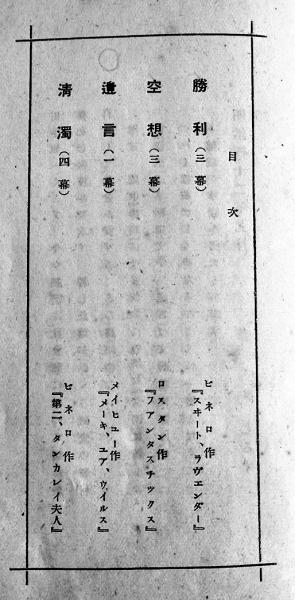 目次
勝利(三幕)
ピネロ作
『スヰート、ラヴエンダー』
空想(三幕)
ロスタン作
『フアンタスチツクス』
遺言(一幕)
メイヒュー作
『メーキ、ユア、ウイルス』
清濁(四幕)
ピネロ作
『第二、タンカレイ夫人』